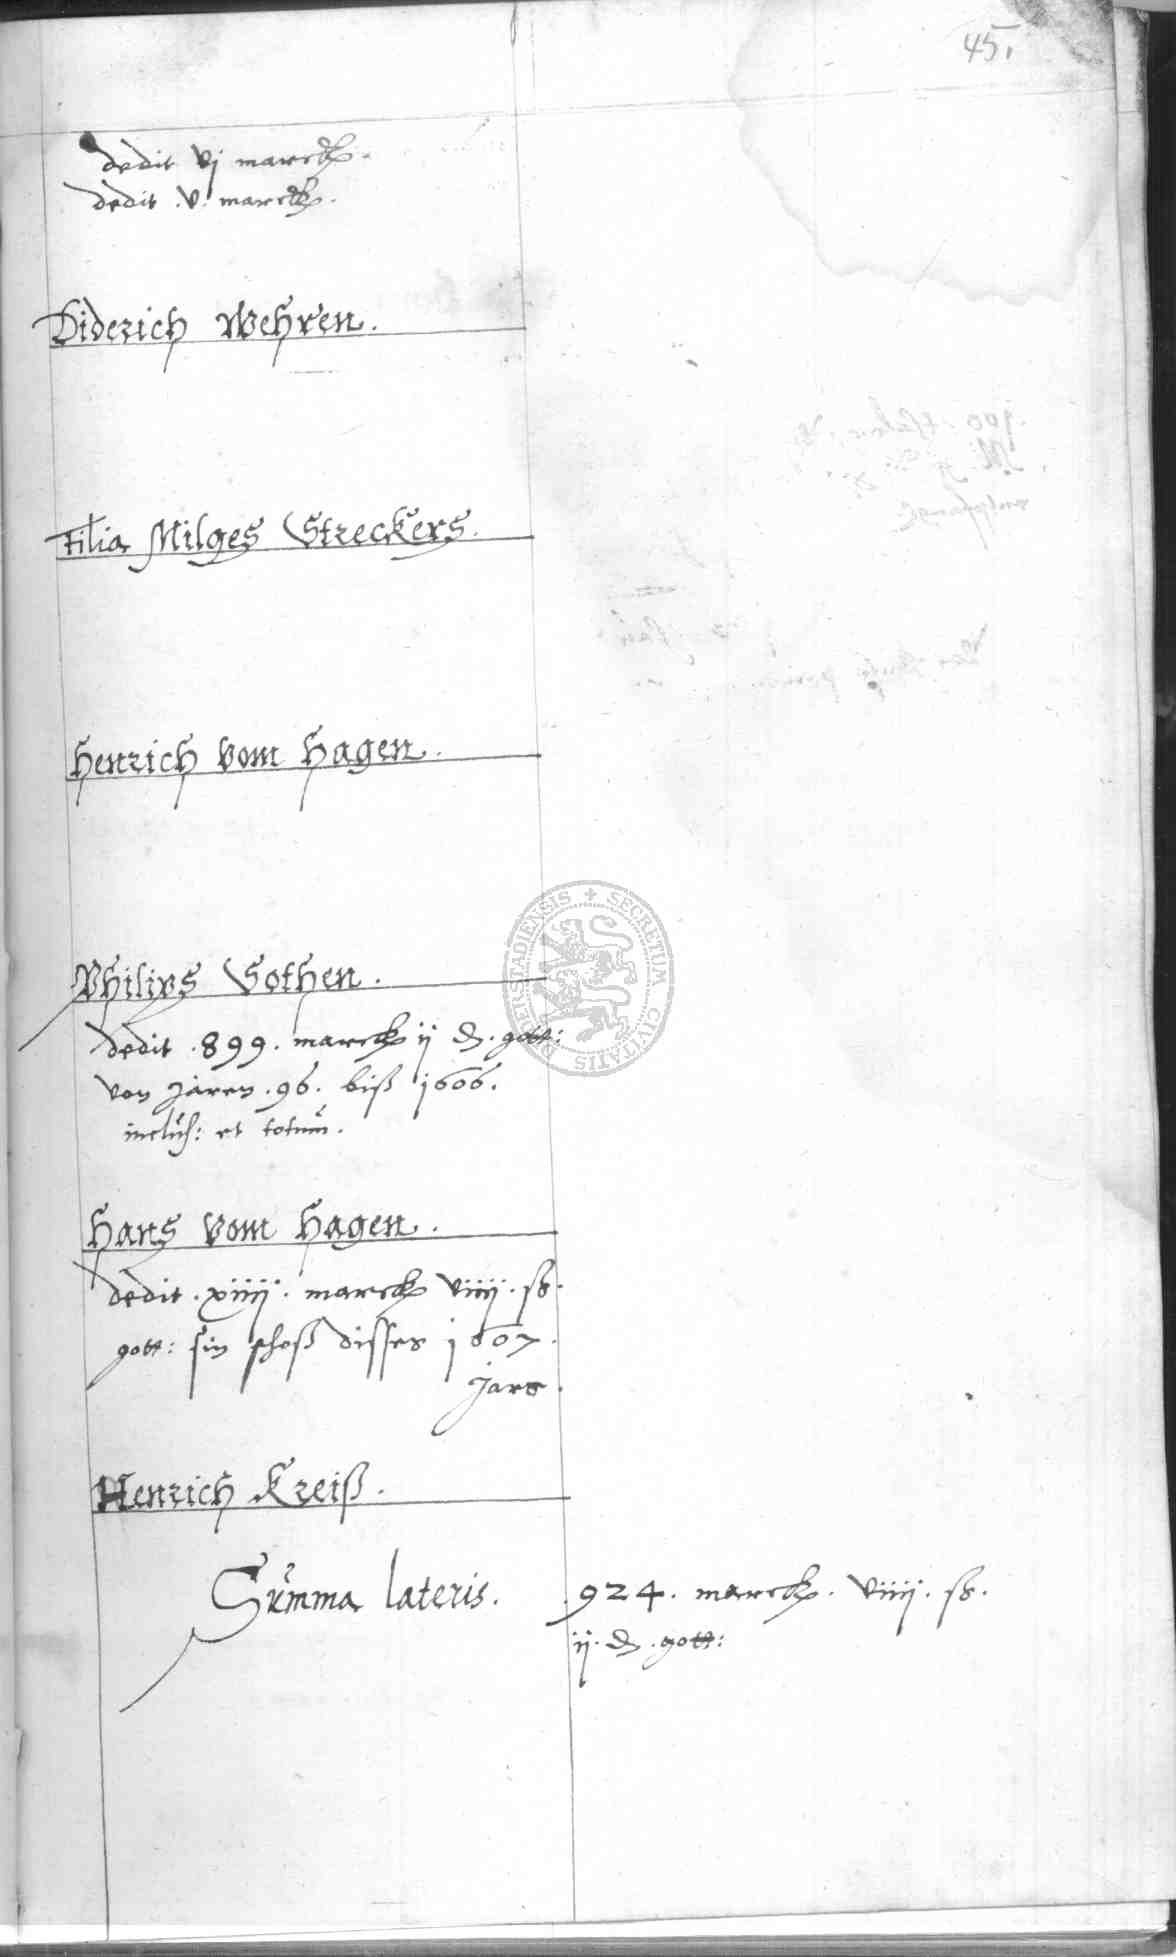 45.
dedit vj marck.
dedit .v. marck.
Diderich Wehren.
Filia Milges Streckers.
Henrich vom Hagen.
Philips Sothen.
dedit .899. marck ij ₰. gott:
von jaren .96. biß 1606.
inclus: et totum.
Hans vom Hagen.
dedit .xiiij. marck viiij. ß.
gott: sin schoß disses 1607.
jars.
Henrich Kreiß.
Summa lateris. .924. marck. viiij. ß.
ij. ₰. gott:
SECRETUM CIVITATIS DUDERSTADIENSIS